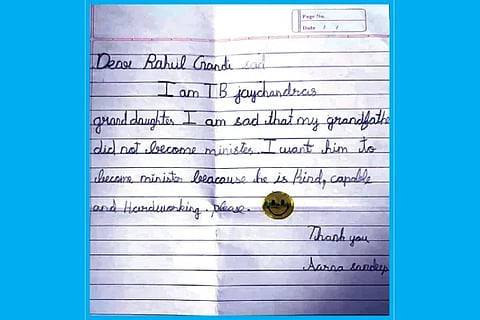 Page No.
Date / /
Dear Rahul Gandi sad
I am T B jaychandras
granddaughter I am sad that my grandfathe
did not become minister. I want him to
become minister beacause he is Kind, capable
and Hardworking. please.
Thank you
Aarna sandeep